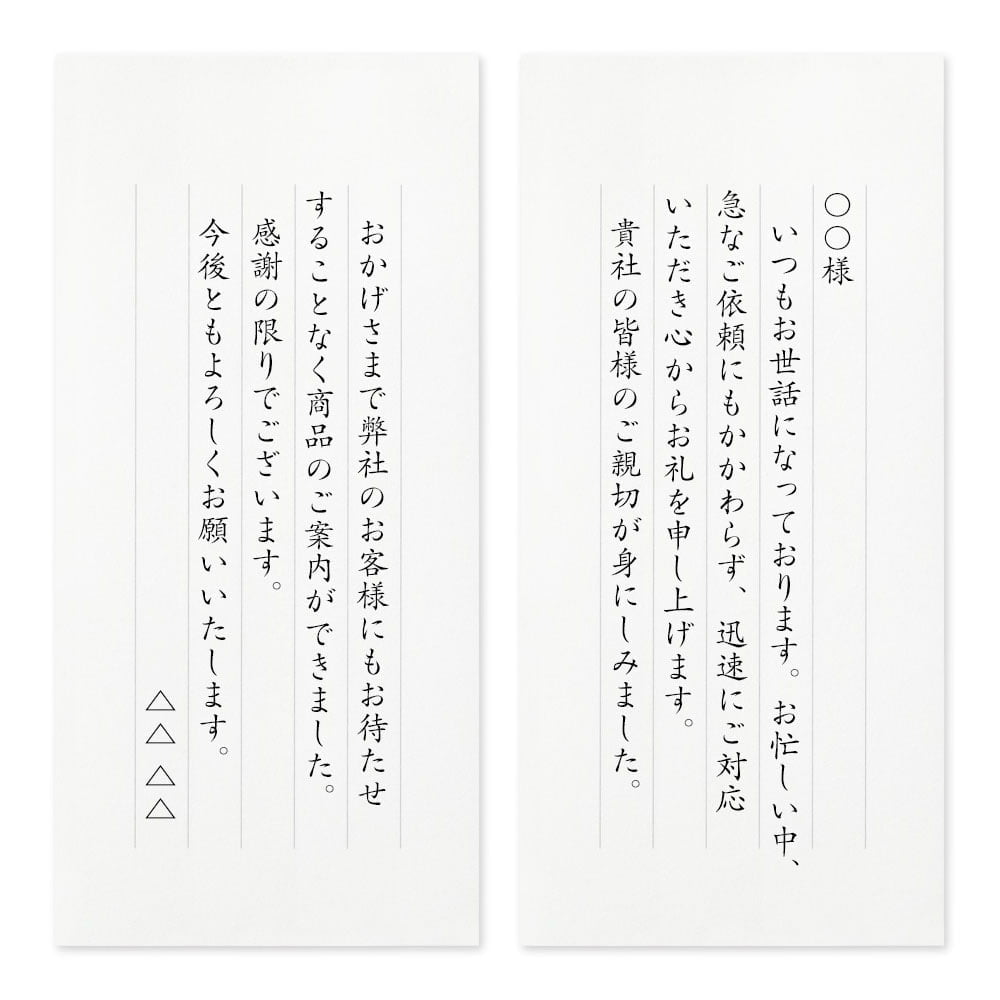 〇〇様
いつもお世話になっております。お忙しい中、
急なご依頼にもかかわらず、迅速にご対応
いただき心からお礼を申し上げます。
貴社の皆様のご親切が身にしみました。
おかげさまで弊社のお客様にもお待たせ
することなく商品のご案内ができました。
感謝の限りでございます。
今後ともよろしくお願いいたします。
△△△△